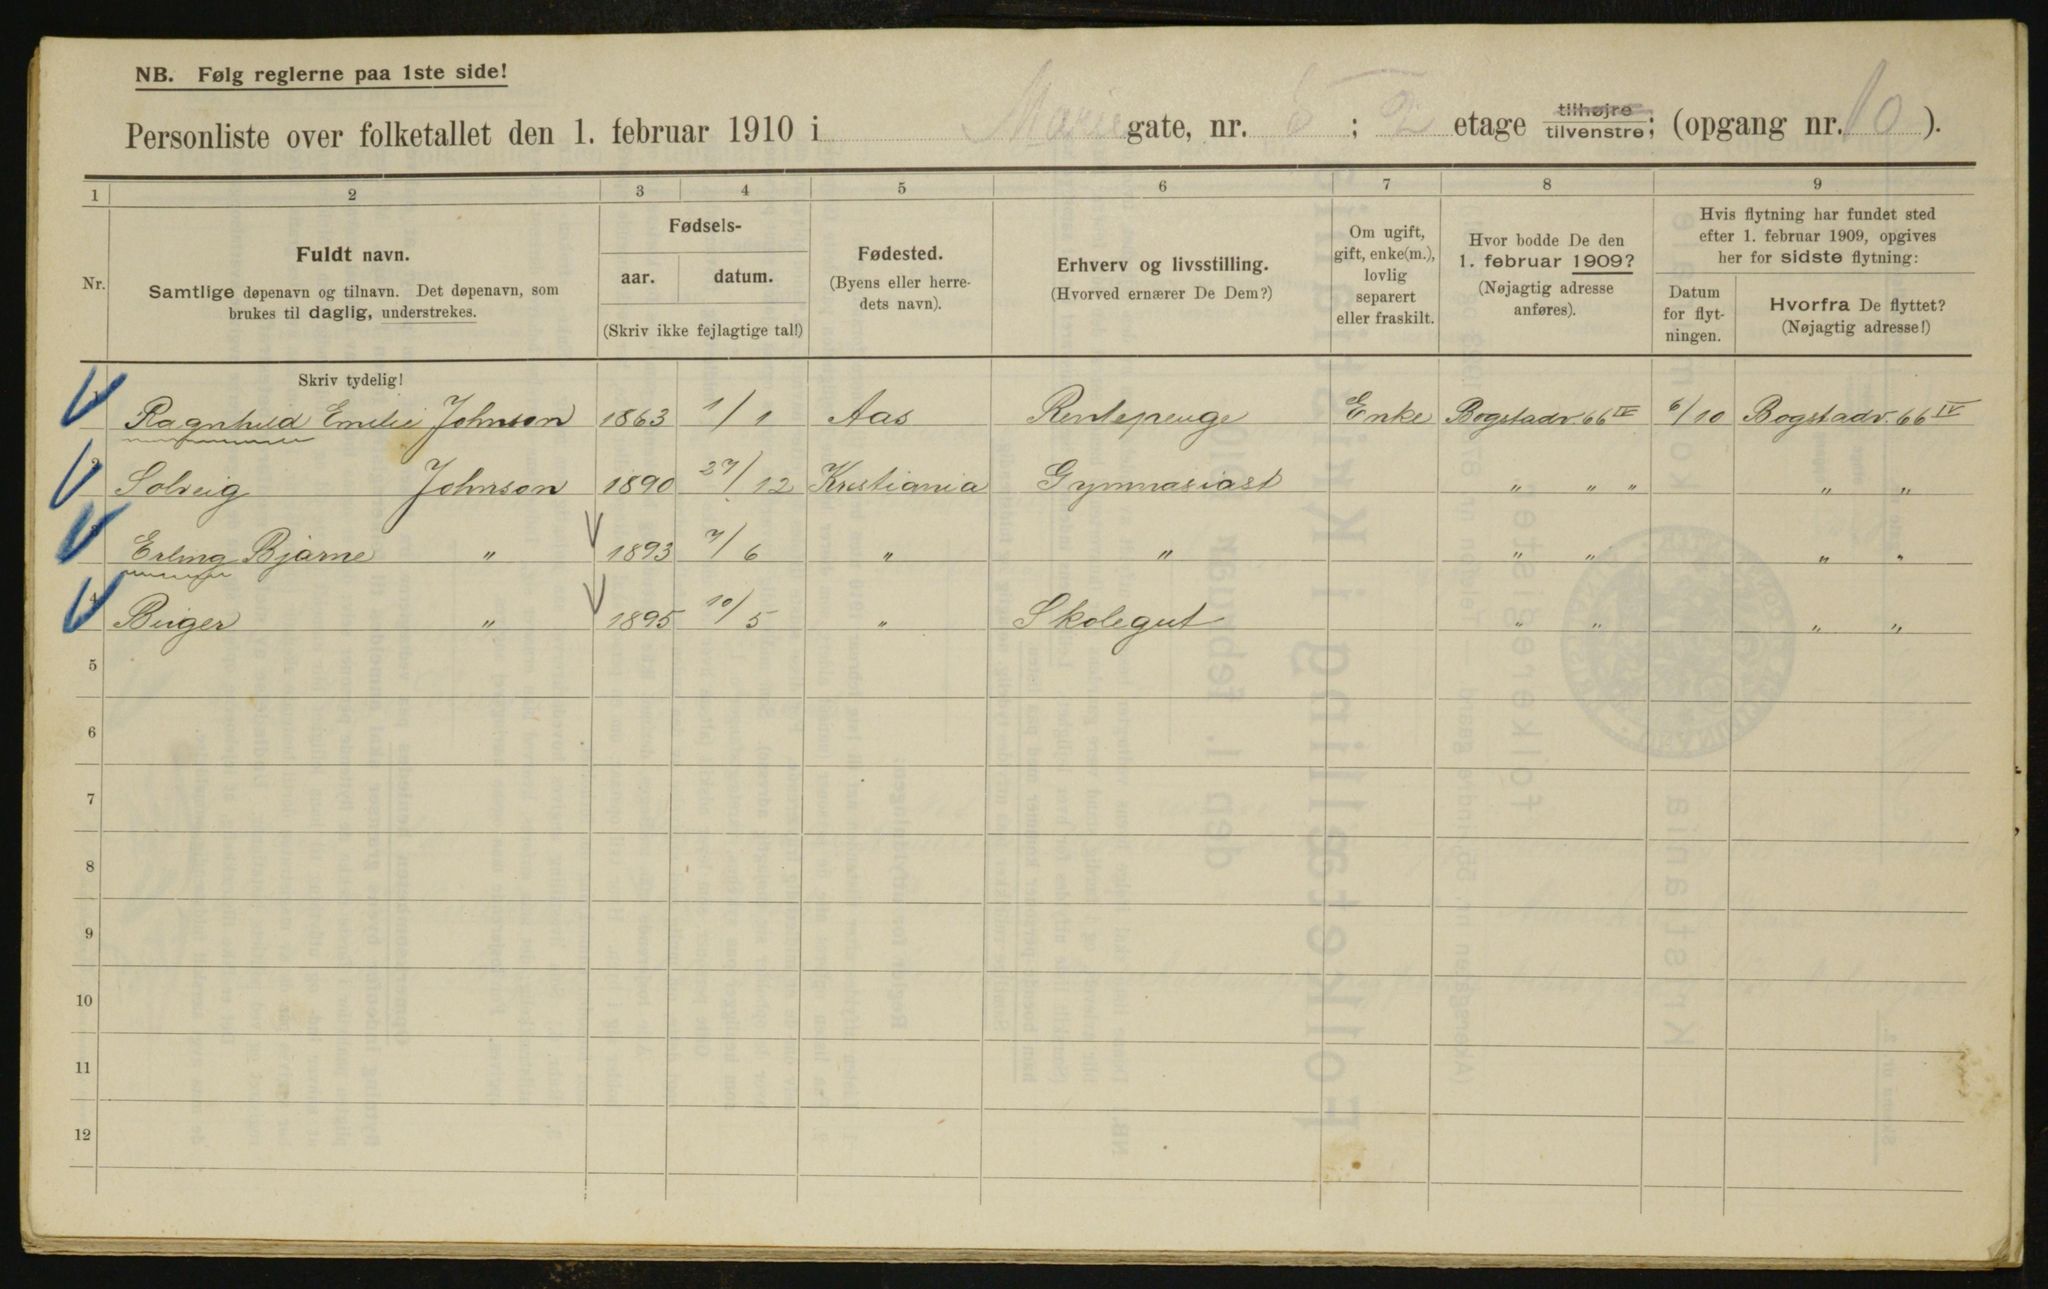 NB. Følg reglerne paa 1ste side!
Personliste over folketallet den 1. februar 1910 i Marie gate, nr. 5; 2 etage tilhøjre tilvenstre; (opgang nr. 10).
1 2 3 4 5 6 7 8 9
Nr.
Fuldt navn.
Samtlige døpenavn og tilnavn. Det døpenavn, som
brukes til daglig, understrekes.
Fødsels-
aar. datum.
(Skriv ikke fejlagtige tal!)
Fødested.
(Byens eller herre-
dets navn).
Erhverv og livsstilling.
(Hvorved ernærer De Dem?)
Om ugift,
gift, enke(m.),
lovlig
separert
eller fraskilt.
Hvor bodde De den
1. februar 1909?
(Nøjagtig adresse
anføres).
Hvis flytning har fundet sted
efter 1. februar 1909, opgives
her for sidste flytning:
Datum
for flyt-
ningen.
Hvorfra De flyttet?
(Nøjagtig adresse!)
Skriv tydelig!
1 Ragnhild Emilie Johnson 1863 1/1 Aas Rentepenge Enke Bogstadv. 66 IV 6/10 Bogstadv. 66 IV
2 Solveig Johnson 1890 27/12 Kristiania Gymnasiast " " " " "
3 Erling Bjarne " 1893 7/6 " " " " " "
4 Birger " 1895 10/5 " Skolegut " " " "
5
6
7
8
9
10
11
12